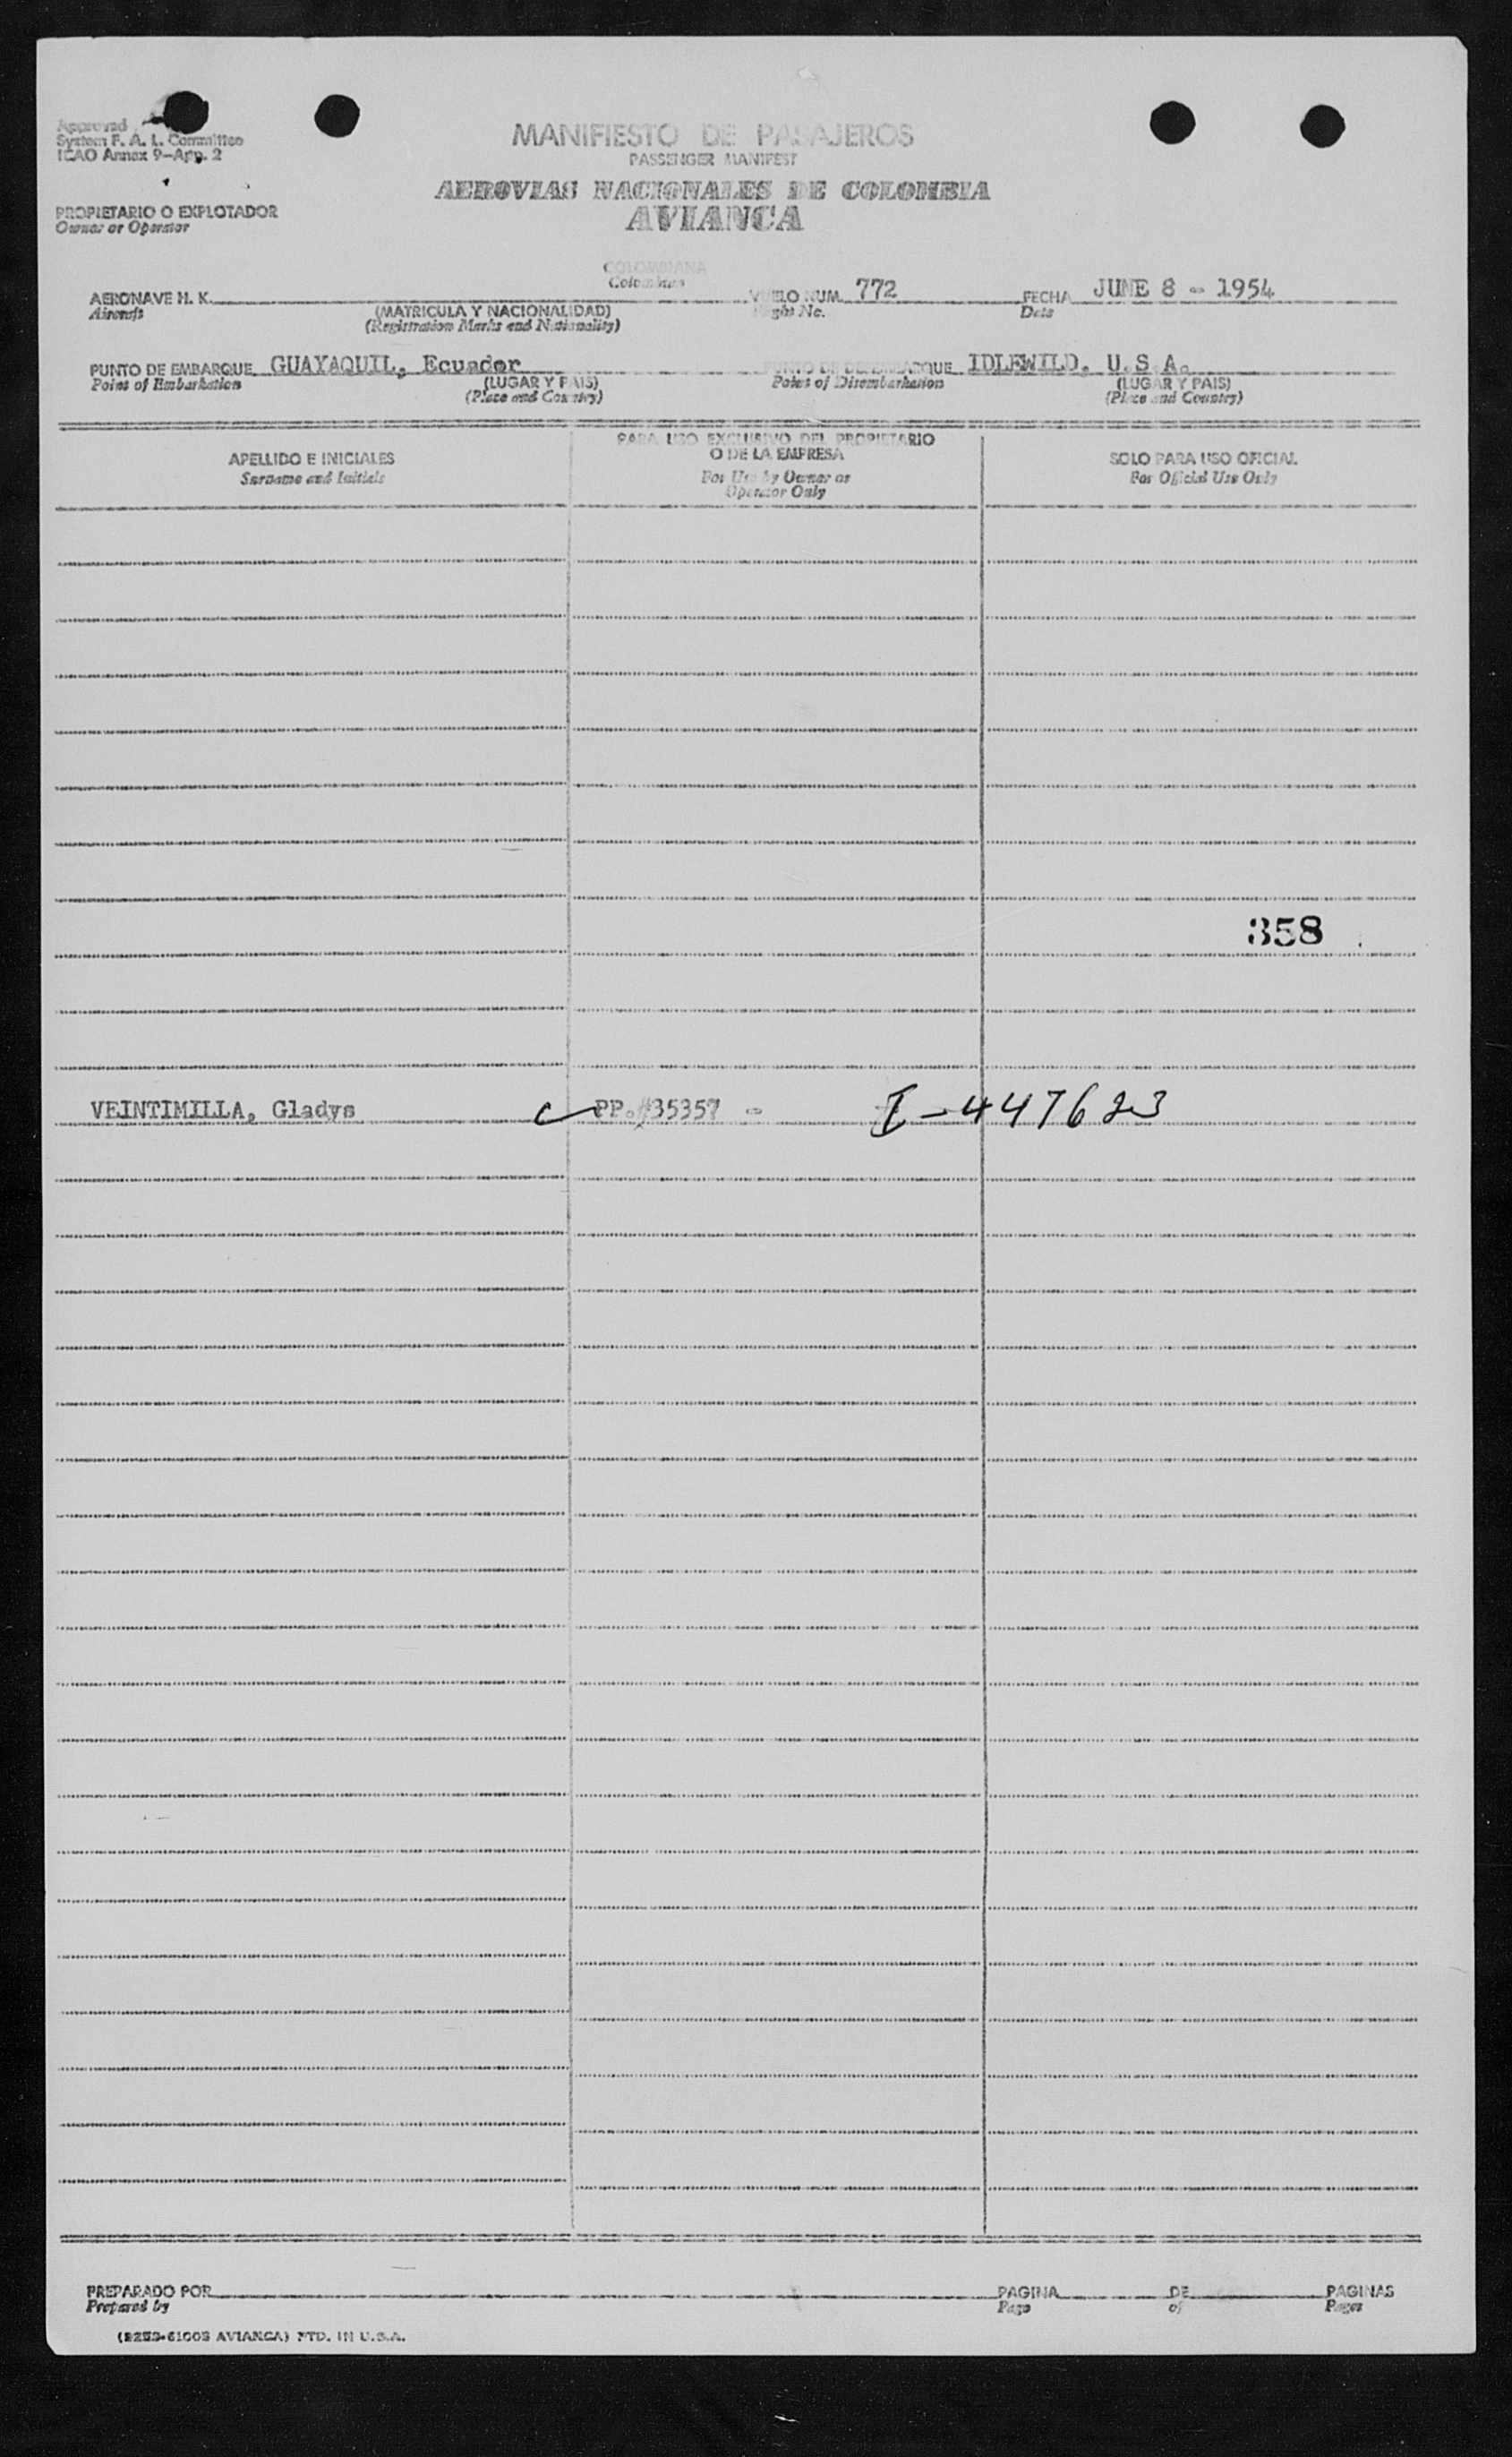 Approved
System F. A. L. Committee
ICAO Annex 9-App. 2
MANIFIESTO DE PASAJEROS
PASSENGER MANIFEST
AEROVIAS NACIONALES DE COLOMBIA
AVIANCA
PROPIETARIO O EXPLOTADOR
Owner or Operator
COLOMBIANA
Colombian
AERONAVE H. K. VUELO NUM. 772 FECHA JUNE 8 - 1954
Aircraft (MATRICULA Y NACIONALIDAD) Flight No. Date
(Registration Marks and Nationality)
PUNTO DE EMBARQUE GUAYAQUIL, Ecuador PUNTO DE DESEMBARQUE IDLEWILD, U.S.A.
Point of Embarkation (LUGAR Y PAIS) Point of Disembarkation (LUGAR Y PAIS)
(Place and Country) (Place and Country)
APELLIDO E INICIALES
Surname and Initials
PARA USO EXCLUSIVO DEL PROPIETARIO
O DE LA EMPRESA
For Use by Owner or
Operator Only
SOLO PARA USO OFICIAL
For Official Use Only
358
VEINTIMILLA, Gladys PP.#35357 - I-447623
PREPARADO POR PAGINA DE PAGINAS
Prepared by Page of Pages
AVIANCA) PTD. IN U.S.A.